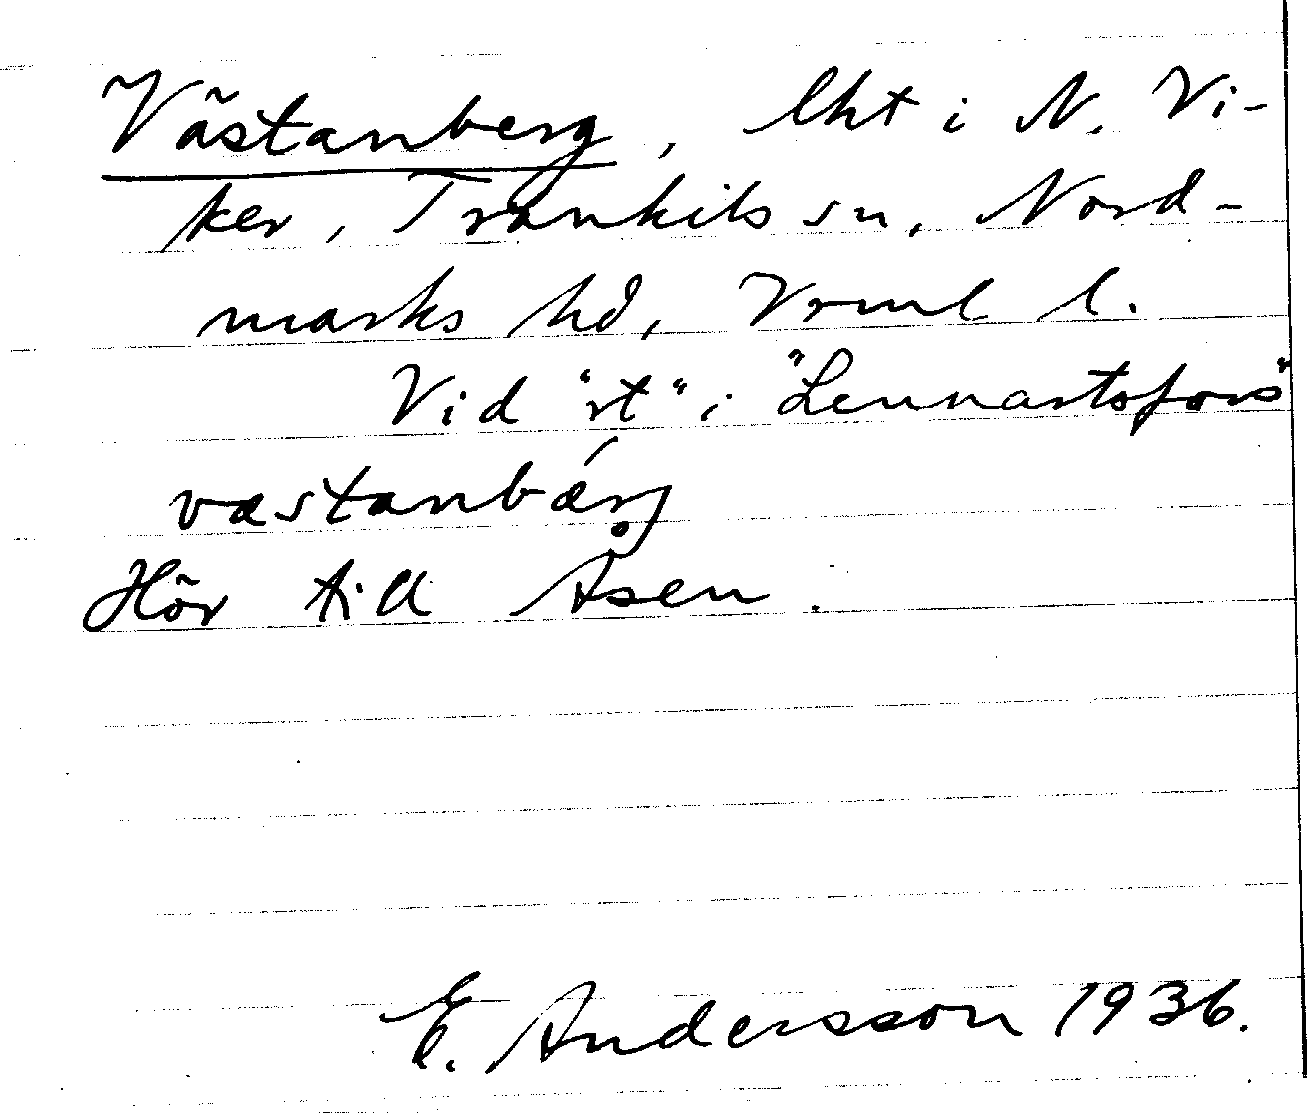 Västanberg, lht i N. Vi-
ker, Trankils sn, Nord-
marks hd, Vrml l.
Vid "rt" i "Lennartsfors"
vastanbǽrj
Hör till Åsen.
E. Andersson 1936.